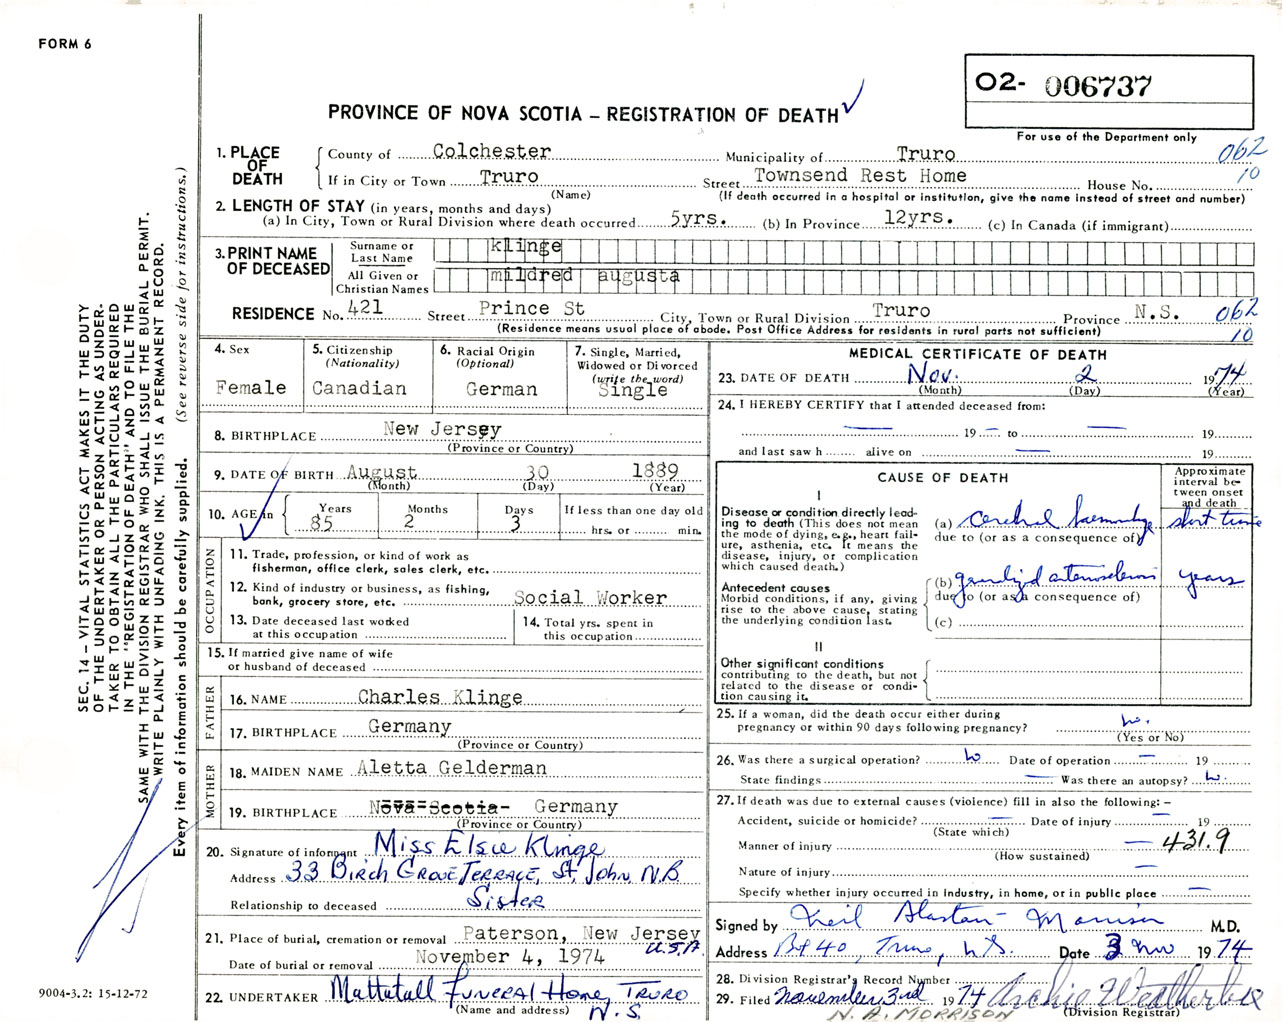 FORM 6
O2- 006737
For use of the Department only
PROVINCE OF NOVA SCOTIA – REGISTRATION OF DEATH
1. PLACE OF DEATH
County of Colchester Municipality of Truro 062
If in City or Town Truro Street Townsend Rest Home House No. 10
(Name) (If death occurred in a hospital or institution, give the name instead of street and number)
2. LENGTH OF STAY (in years, months and days)
(a) In City, Town or Rural Division where death occurred 5yrs. (b) In Province 12yrs. (c) In Canada (if immigrant)
3. PRINT NAME OF DECEASED
Surname or Last Name klinge
All Given or Christian Names mildred augusta
RESIDENCE No. 421 Street Prince St City, Town or Rural Division Truro Province N.S. 062
(Residence means usual place of abode. Post Office Address for residents in rural parts not sufficient) 10
4. Sex
Female
5. Citizenship
(Nationality)
Canadian
6. Racial Origin
(Optional)
German
7. Single, Married,
Widowed or Divorced
(write the word)
Single
8. BIRTHPLACE New Jersey
(Province or Country)
9. DATE OF BIRTH August 30 1889
(Month) (Day) (Year)
10. AGE in
Years Months Days If less than one day old
85 2 3 hrs. or min.
OCCUPATION
11. Trade, profession, or kind of work as
fisherman, office clerk, sales clerk, etc.
12. Kind of industry or business, as fishing,
bank, grocery store, etc. Social Worker
13. Date deceased last worked
at this occupation
14. Total yrs. spent in
this occupation
15. If married give name of wife
or husband of deceased
FATHER
16. NAME Charles Klinge
17. BIRTHPLACE Germany
(Province or Country)
MOTHER
18. MAIDEN NAME Aletta Gelderman
19. BIRTHPLACE Nova Scotia Germany
(Province or Country)
20. Signature of informant Miss Elsie Klinge
Address 33 Birch Grove Terrace, St. John N.B.
Relationship to deceased Sister
21. Place of burial, cremation or removal Paterson, New Jersey
U.S.A.
Date of burial or removal November 4, 1974
22. UNDERTAKER Mattatall Funeral Home, Truro
(Name and address) N.S.
MEDICAL CERTIFICATE OF DEATH
23. DATE OF DEATH Nov. 2 1974
(Month) (Day) (Year)
24. I HEREBY CERTIFY that I attended deceased from:
— 19 — to — 19
and last saw h alive on — 19
CAUSE OF DEATH
Approximate
interval be-
tween onset
and death
I
Disease or condition directly lead-
ing to death (This does not mean
the mode of dying, e.g., heart fail-
ure, asthenia, etc. It means the
disease, injury, or complication
which caused death.)
(a) cerebral haemorrhage short time
due to (or as a consequence of)
Antecedent causes
Morbid conditions, if any, giving
rise to the above cause, stating
the underlying condition last.
(b) generalized arteriosclerosis years
due to (or as a consequence of)
(c)
II
Other significant conditions
contributing to the death, but not
related to the disease or condi-
tion causing it.
25. If a woman, did the death occur either during
pregnancy or within 90 days following pregnancy? No.
(Yes or No)
26. Was there a surgical operation? No Date of operation — 19
State findings — Was there an autopsy? No.
27. If death was due to external causes (violence) fill in also the following: –
Accident, suicide or homicide? — Date of injury — 19
(State which)
Manner of injury — 431.9
(How sustained)
Nature of injury —
Specify whether injury occurred in industry, in home, or in public place —
Signed by Neil Alastair Morrison M.D.
Address Bx 40, Truro, N.S. Date 3 Nov 1974
28. Division Registrar's Record Number
29. Filed November 3rd 1974 Archie Weatherbie
N. A. MORRISON (Division Registrar)
SEC. 14 – VITAL STATISTICS ACT MAKES IT THE DUTY
OF THE UNDERTAKER OR PERSON ACTING AS UNDER-
TAKER TO OBTAIN ALL THE PARTICULARS REQUIRED
IN THE "REGISTRATION OF DEATH" AND TO FILE THE
SAME WITH THE DIVISION REGISTRAR WHO SHALL ISSUE THE BURIAL PERMIT.
WRITE PLAINLY WITH UNFADING INK. THIS IS A PERMANENT RECORD.
Every item of information should be carefully supplied. (See reverse side for instructions.)
9004-3.2: 15-12-72